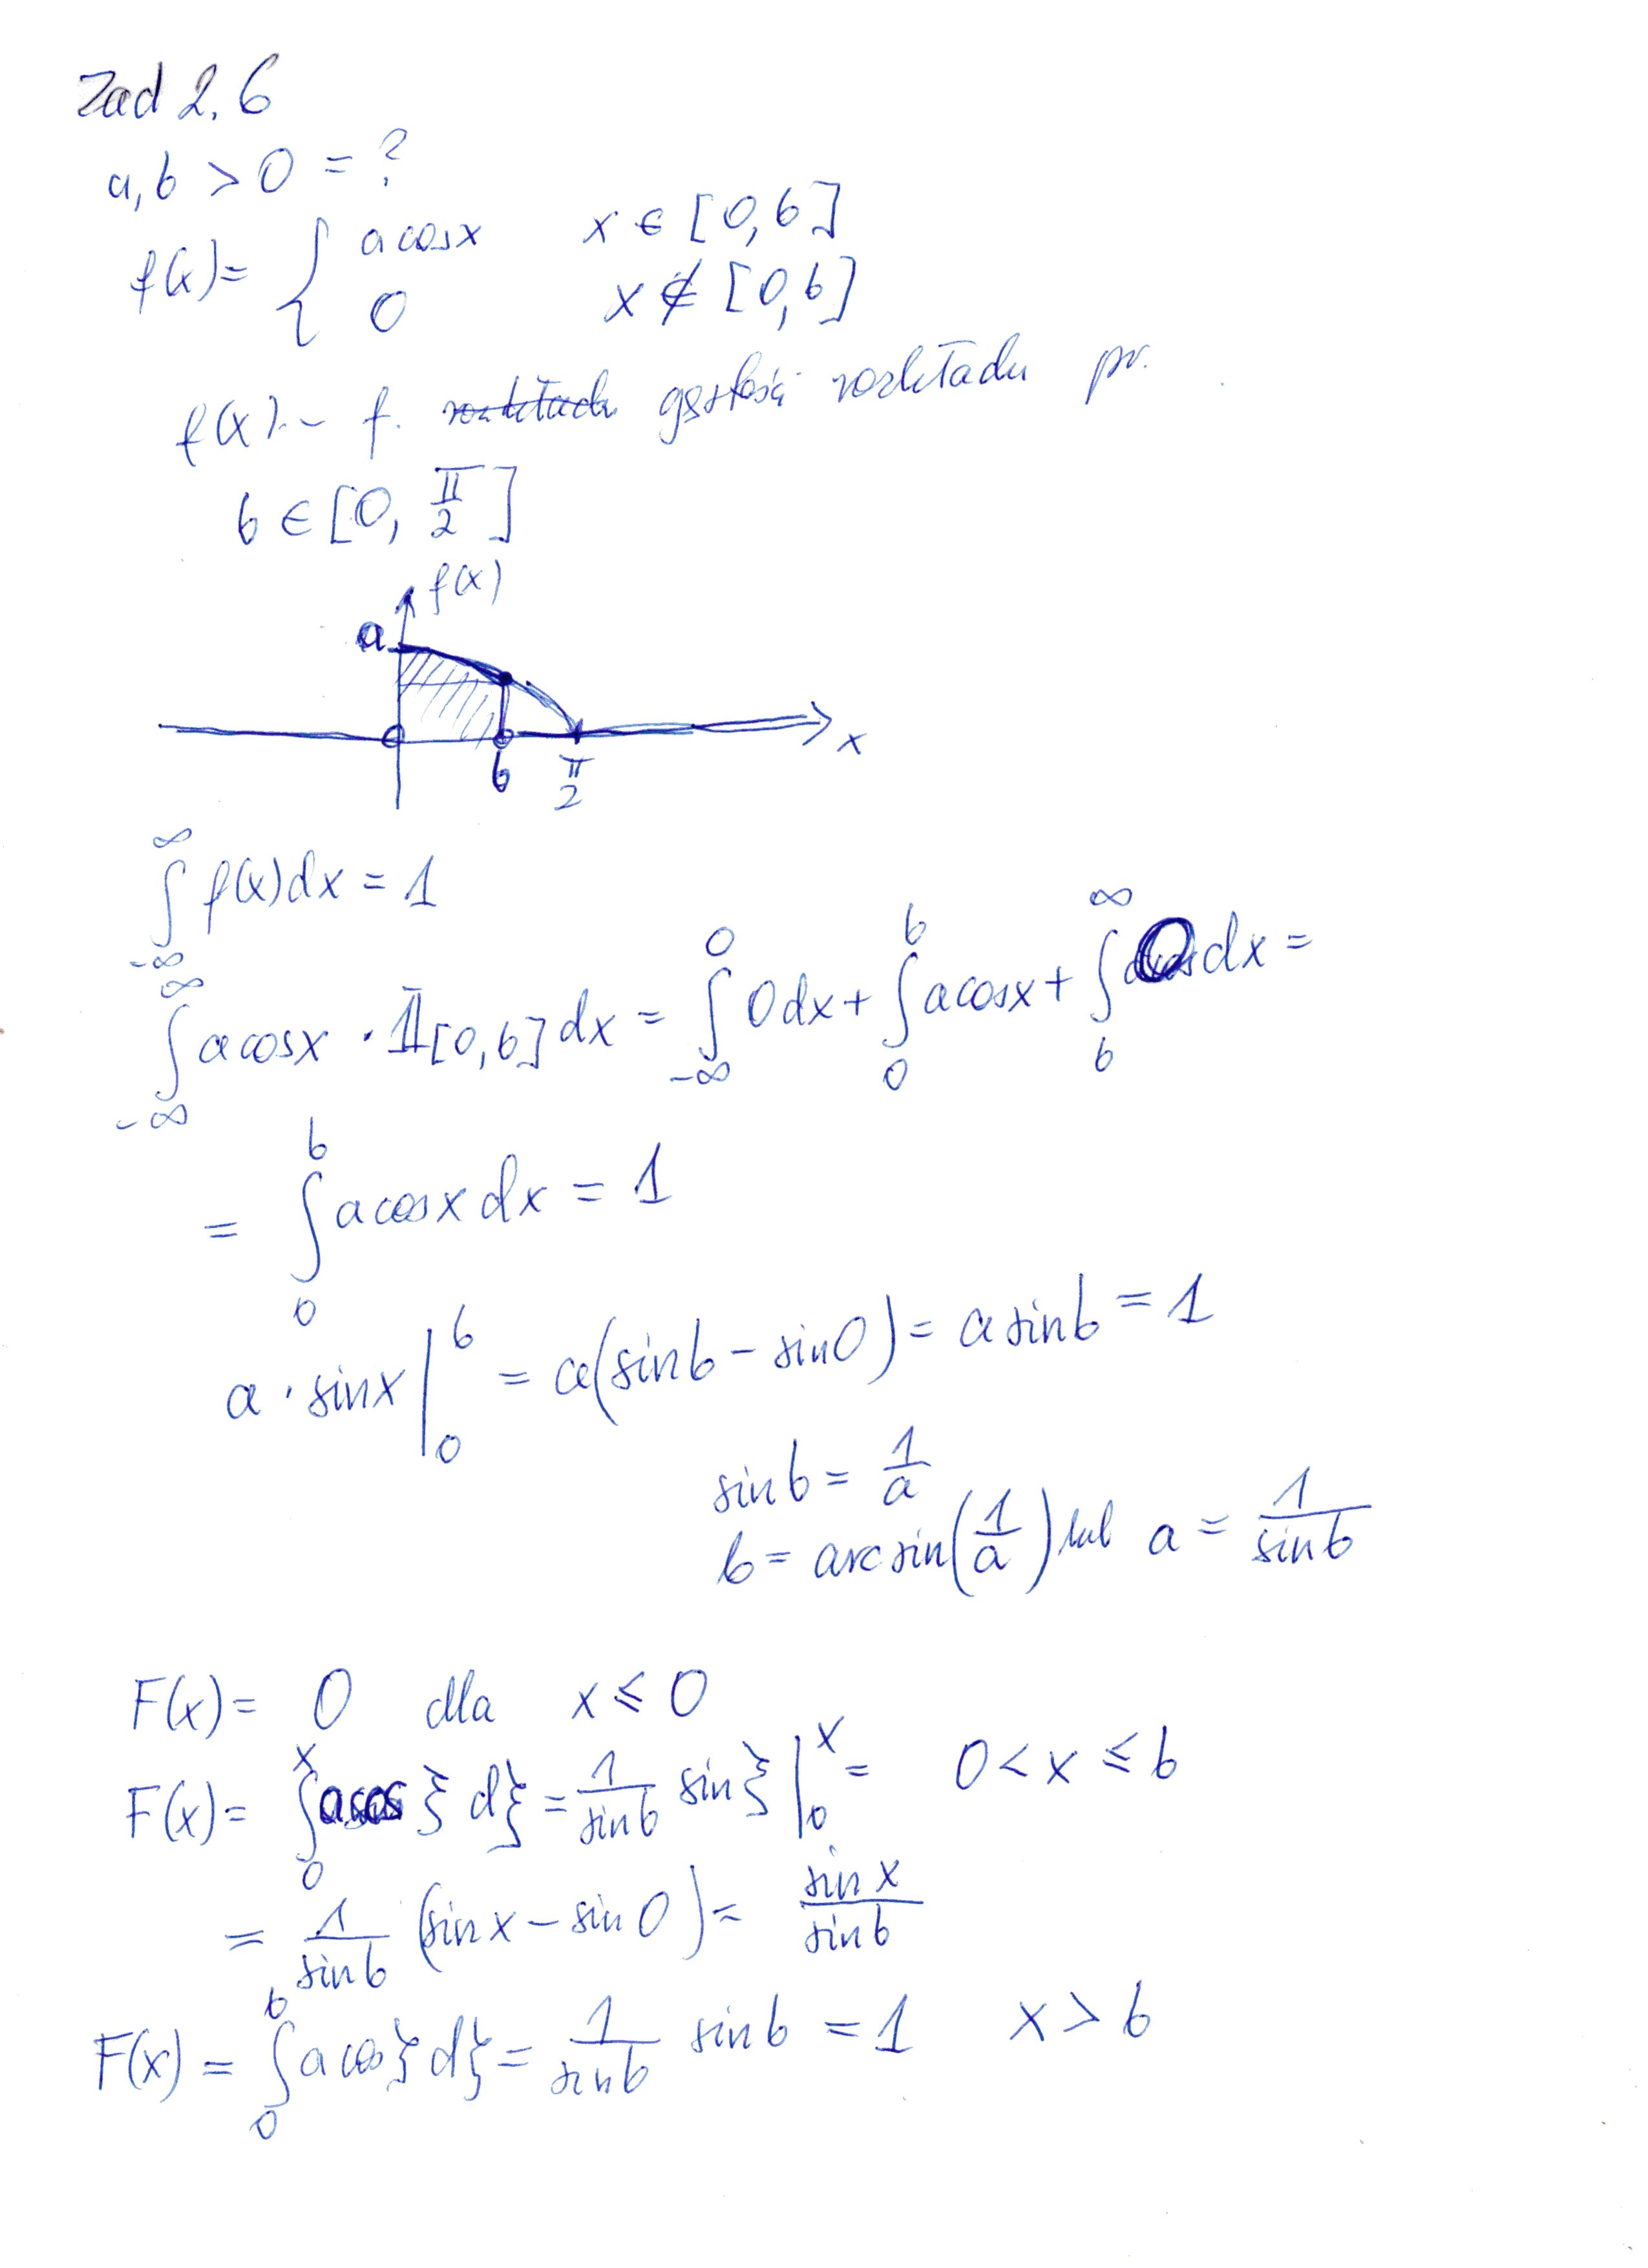 Zad 2.6
a, b > 0 = ?
f(x) = { a cosx x ∈ [0, b]
0 x ∉ [0, b]
f(x) - f. gęstości rozkładu pr.
b ∈ [0, π/2]
f(x)
a
b π/2 x
∫_{-∞}^{∞} f(x)dx = 1
∫_{-∞}^{∞} a cosx · 𝟙[0,b] dx = ∫_{-∞}^{0} 0 dx + ∫_{0}^{b} a cosx + ∫_{b}^{∞} 0 dx =
= ∫_{0}^{b} a cosx dx = 1
a · sinx |_{0}^{b} = a(sinb - sin0) = a sinb = 1
sinb = 1/a
b = arcsin(1/a) lub a = 1/sinb
F(x) = 0 dla x ≤ 0
F(x) = ∫_{0}^{x} a cos ξ dξ = 1/sinb sin ξ |_{0}^{x} = 0 < x ≤ b
= 1/sinb (sinx - sin0) = sinx/sinb
F(x) = ∫_{0}^{b} a cos ξ dξ = 1/sinb sinb = 1 x > b